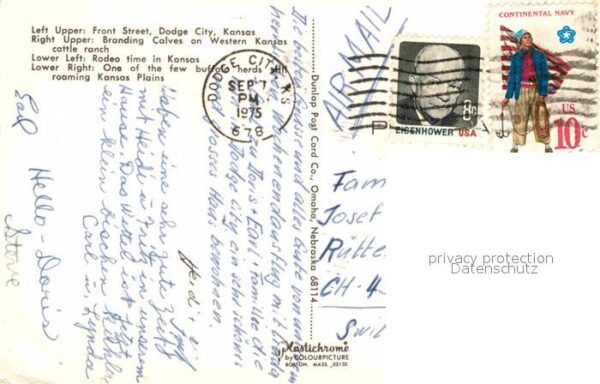 Left Upper: Front Street, Dodge City, Kansas
Right Upper: Branding Calves on Western Kansas
cattle ranch
Lower Left: Rodeo time in Kansas
Lower Right: One of the few buffalo herds still
roaming Kansas Plains
DODGE CITY, KS
SEP 7
PM
1975
678
AIR MAIL
EISENHOWER USA
8c
CONTINENTAL NAVY
US
10c
Dunlap Post Card Co., Omaha, Nebraska 68114
Die besten Grüsse und alles Gute von
Wochenendausflug mit
Doris + Earl + Familie die
in Dodge City ein sehr schönes
grosses Haus bewohnen.
Heidi
haben eine sehr gute Zeit
mit Heidi u. in unserm
Hause. Das Wetter ist jetzt
ein klein bischen
Carl u. Lynda
Earl
Hello - Doris
Steve
Fam
Josef
Rütte
CH-4
Swi
Plastichrome
by COLOURPICTURE
BOSTON, MASS. 02130
privacy protection
Datenschutz